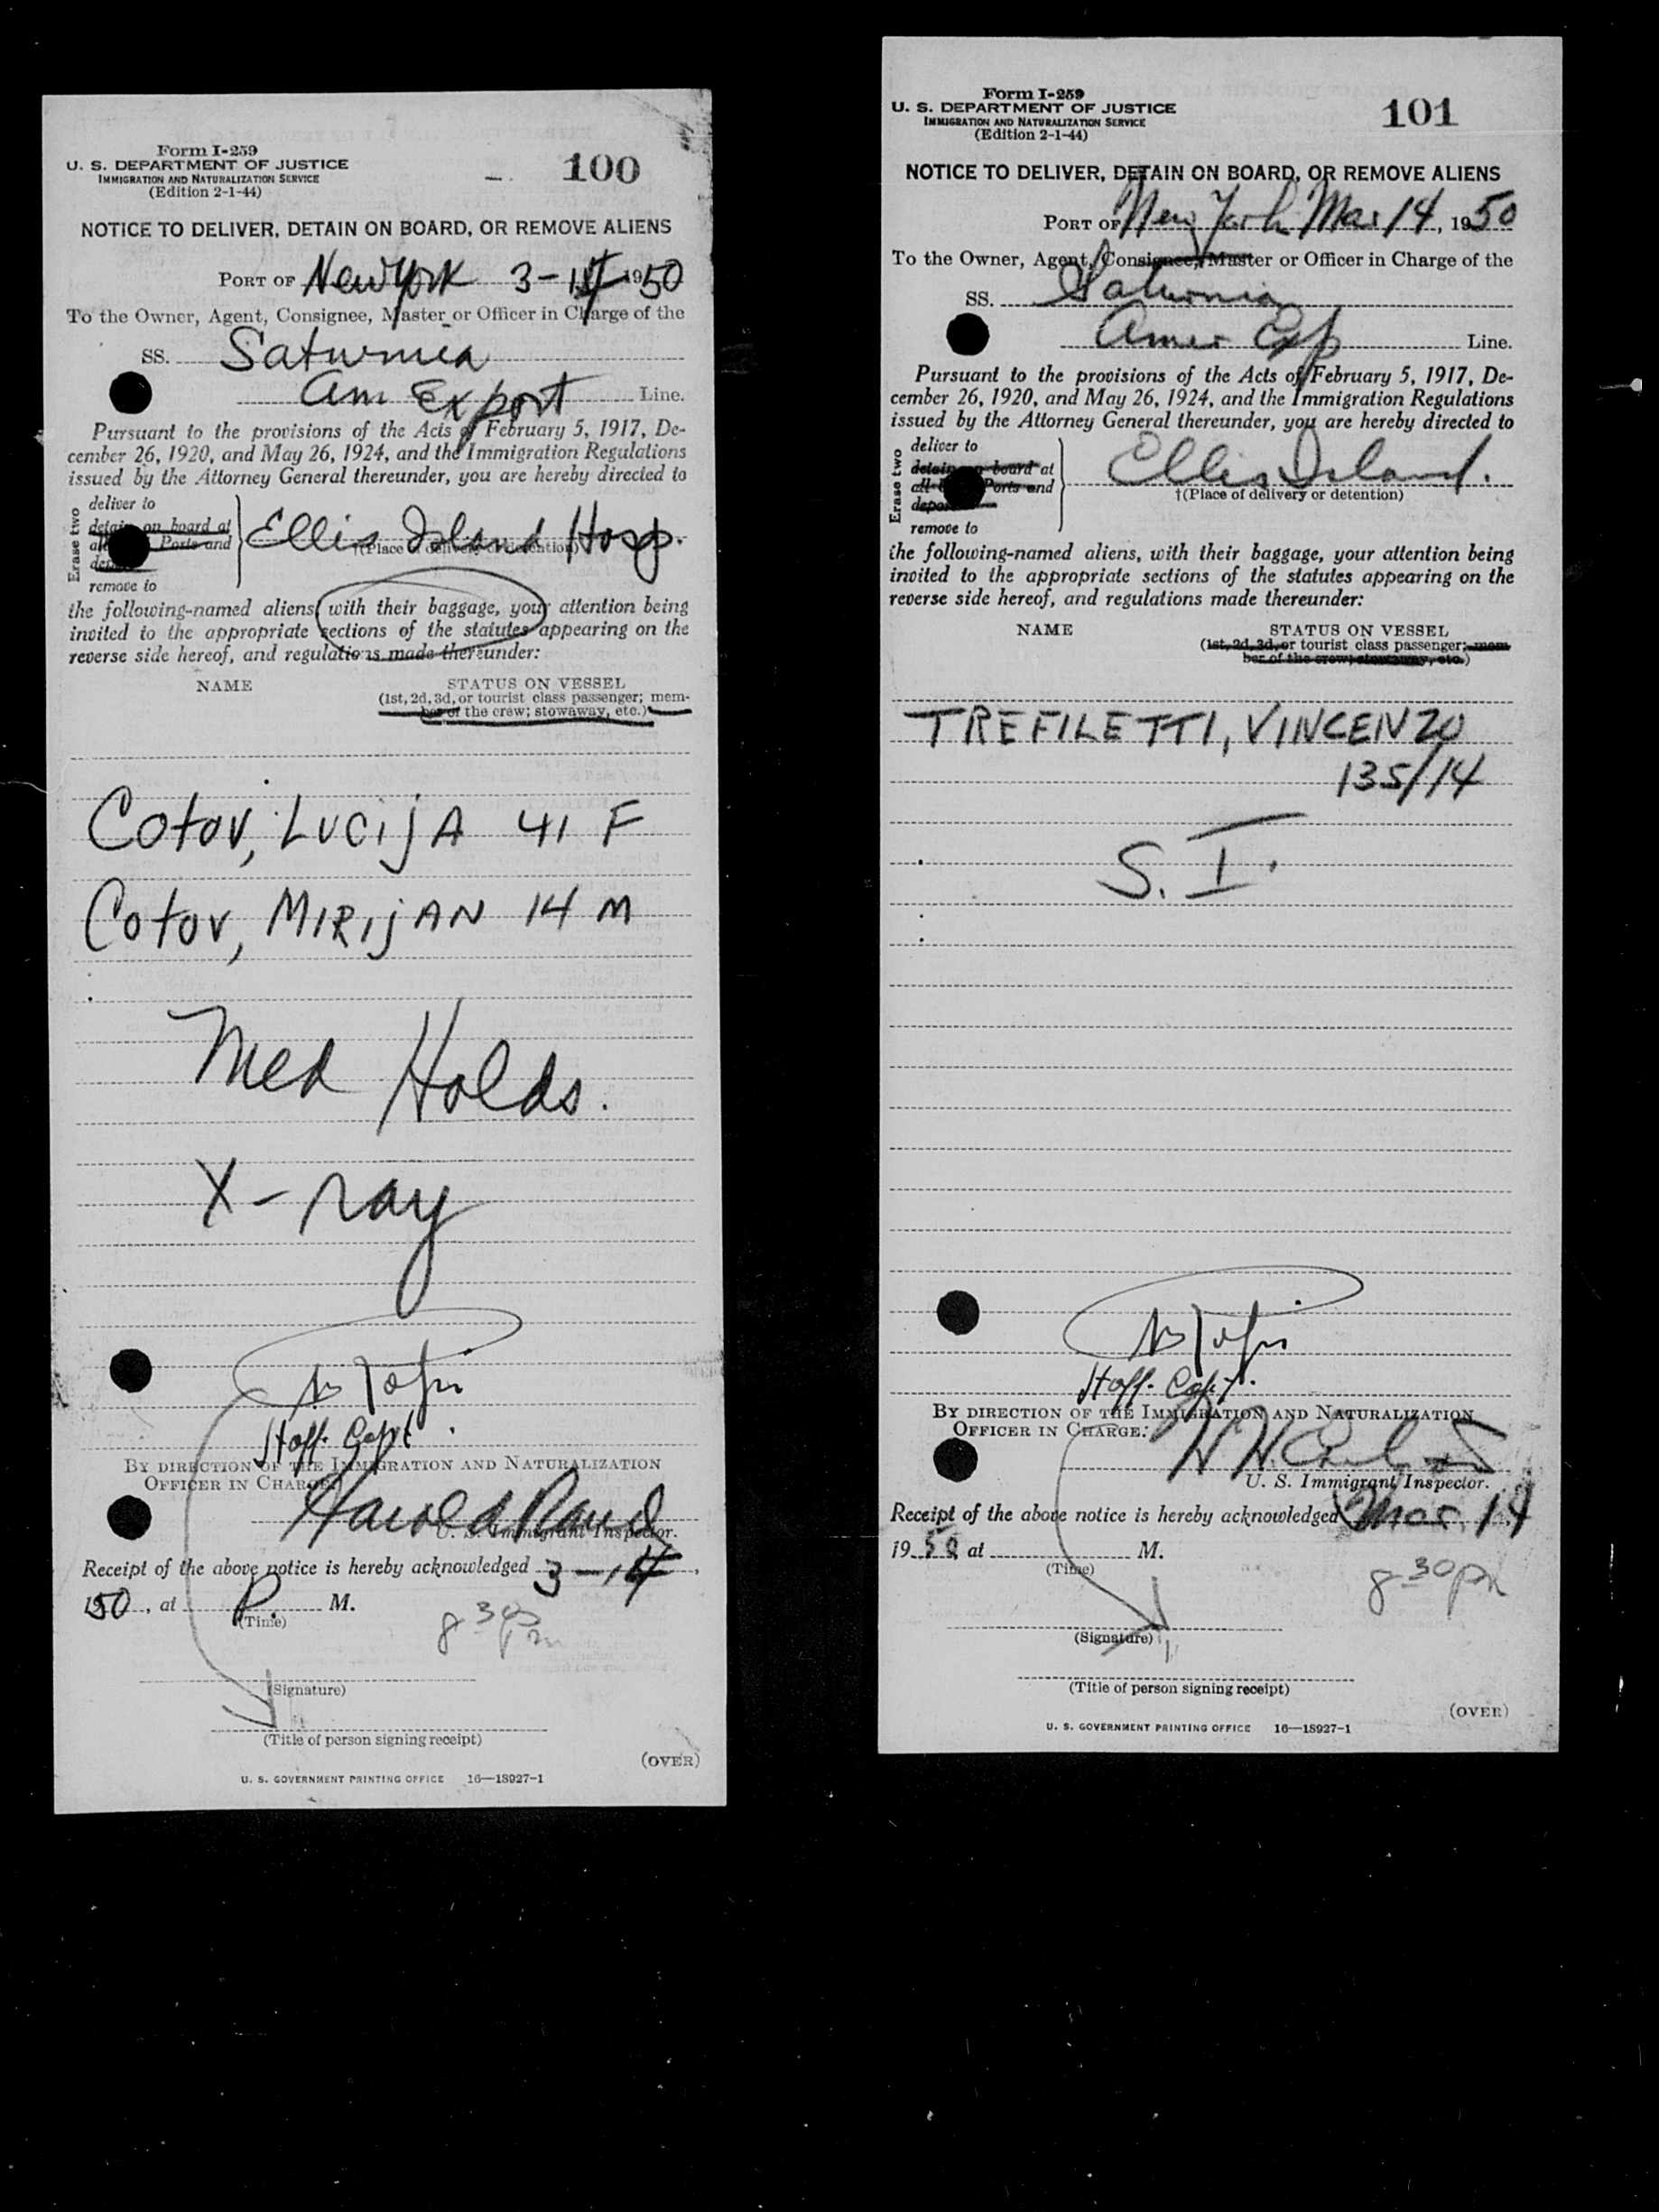 Form I-259
U. S. DEPARTMENT OF JUSTICE
IMMIGRATION AND NATURALIZATION SERVICE
(Edition 2-1-44)
100
NOTICE TO DELIVER, DETAIN ON BOARD, OR REMOVE ALIENS
PORT OF New York 3-14 1950
To the Owner, Agent, Consignee, Master or Officer in Charge of the
SS. Saturnia
Am Export Line.
Pursuant to the provisions of the Acts of February 5, 1917, De-
cember 26, 1920, and May 26, 1924, and the Immigration Regulations
issued by the Attorney General thereunder, you are hereby directed to
Erase two
deliver to
detain on board at
Ports and
remove to
Ellis Island Hosp.
†(Place of delivery or detention)
the following-named aliens, with their baggage, your attention being
invited to the appropriate sections of the statutes appearing on the
reverse side hereof, and regulations made thereunder:
NAME
STATUS ON VESSEL
(1st, 2d, 3d, or tourist class passenger; mem-
ber of the crew; stowaway, etc.)
Cotov, LUCIJA 41 F
Cotov, MIRIJAN 14 M
Med Holds.
X-ray
Staff. Capt.
BY DIRECTION OF THE IMMIGRATION AND NATURALIZATION
OFFICER IN CHARGE:
Harold Rand
U. S. Immigrant Inspector.
Receipt of the above notice is hereby acknowledged 3-14,
1950, at P. M.
(Time)
8 30 pm
(Signature)
(Title of person signing receipt)
(OVER)
U. S. GOVERNMENT PRINTING OFFICE 16—18927-1
Form I-259
U. S. DEPARTMENT OF JUSTICE
IMMIGRATION AND NATURALIZATION SERVICE
(Edition 2-1-44)
101
NOTICE TO DELIVER, DETAIN ON BOARD, OR REMOVE ALIENS
PORT OF New York Mar 14, 1950
To the Owner, Agent, Consignee, Master or Officer in Charge of the
SS. Saturnia
Amer Exp Line.
Pursuant to the provisions of the Acts of February 5, 1917, De-
cember 26, 1920, and May 26, 1924, and the Immigration Regulations
issued by the Attorney General thereunder, you are hereby directed to
Erase two
deliver to
detain on board at
all Ports and
remove to
Ellis Island.
†(Place of delivery or detention)
the following-named aliens, with their baggage, your attention being
invited to the appropriate sections of the statutes appearing on the
reverse side hereof, and regulations made thereunder:
NAME
STATUS ON VESSEL
(1st, 2d, 3d, or tourist class passenger; mem-
ber of the crew; stowaway, etc.)
TREFILETTI, VINCENZO
135/14
S. I.
Staff. Capt.
BY DIRECTION OF THE IMMIGRATION AND NATURALIZATION
OFFICER IN CHARGE:
U. S. Immigrant Inspector.
Receipt of the above notice is hereby acknowledged Mar. 14,
1950 at M.
(Time)
8 30 pm
(Signature)
(Title of person signing receipt)
(OVER)
U. S. GOVERNMENT PRINTING OFFICE 16—18927-1